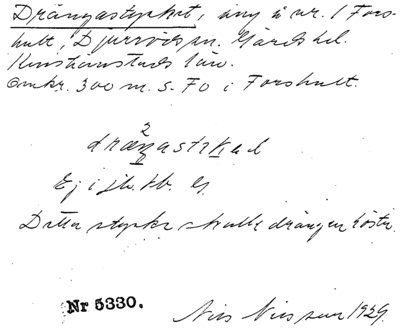 Drängastycket, äng å nr. 1 Fors-
hult, Djurröds sn. Gärds hd.
Kristianstads län.
Omkr. 300 m. S. Fo i Forshult.
2
dræŋastɩkəd
Ej i jb. kb. G.
Detta stycke skulle drängen hösta.
Nr 5330.
Nils Nilsson 1929.